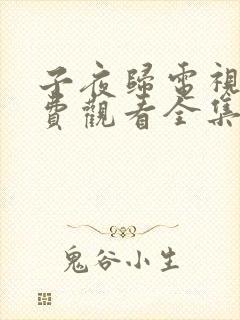 子夜歸電視
費觀看全集
鬼谷小生